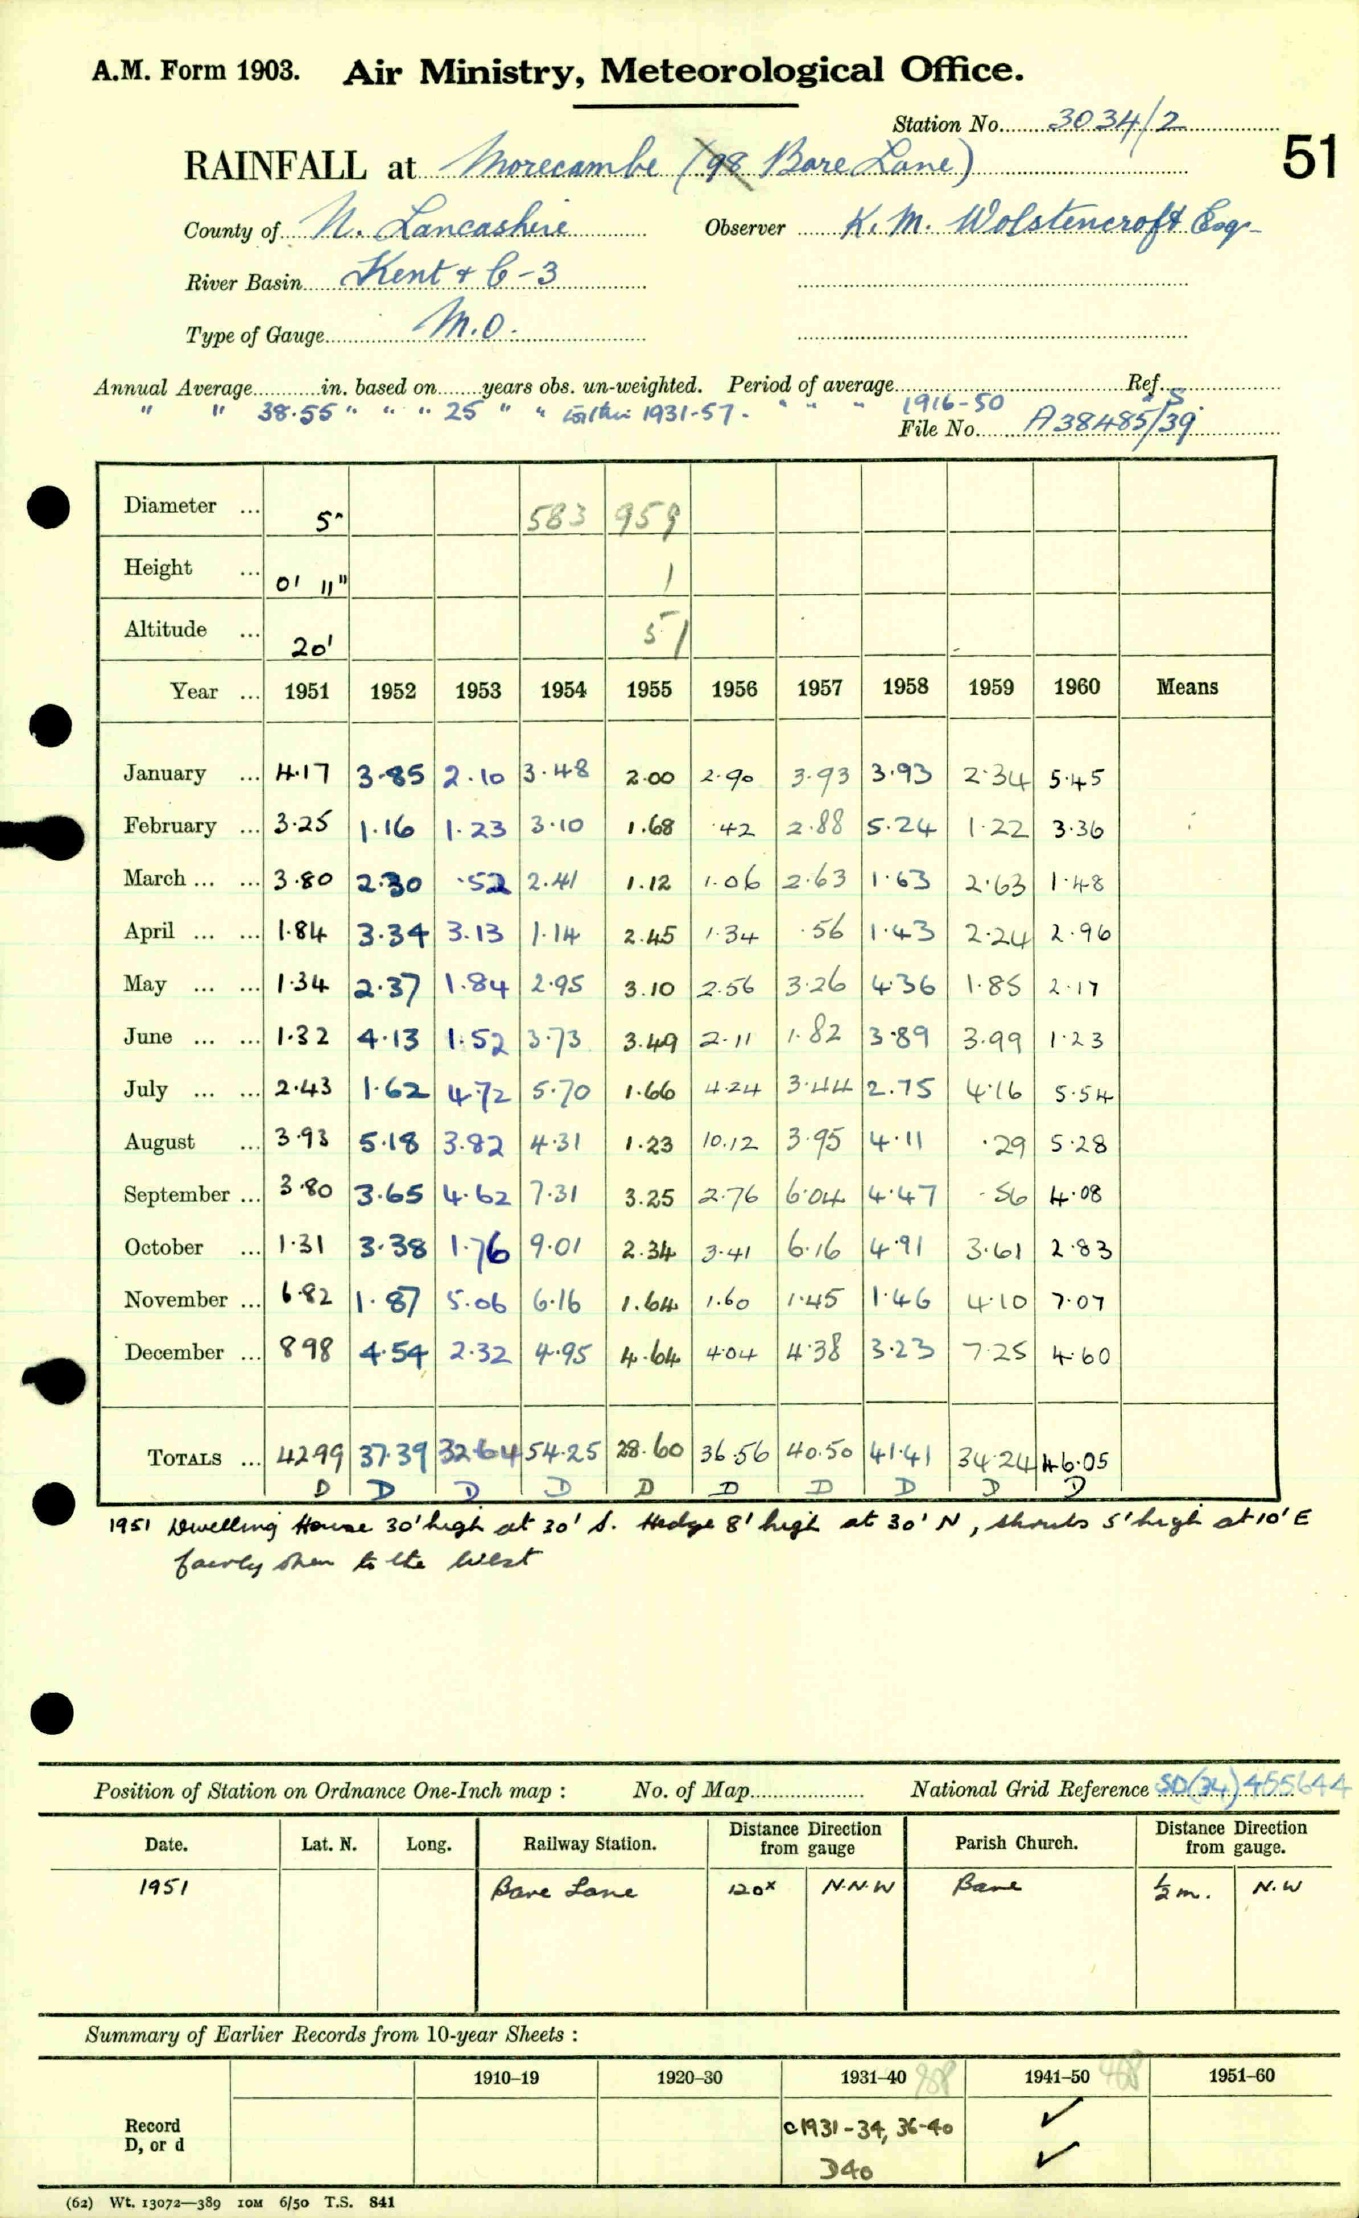 A.M. Form 1903. Air Ministry, Meteorological Office.
Station No. 3034/2
RAINFALL at Morecambe (98 Bare Lane)
51
County of N. Lancashire Observer K. M. Wolstencroft Esq
River Basin Kent & C-3
Type of Gauge M.O.
Annual Average in. based on years obs. un-weighted. Period of average Ref.
" " 38.55 " " " 25 " " within 1931-57. " " " 1916-50 S
File No. A38485/39
Diameter ... 5" 583 959
Height ... 0' 11" 1
Altitude ... 20' 51
Year ... 1951 1952 1953 1954 1955 1956 1957 1958 1959 1960 Means
January ... 4.17 3.85 2.10 3.48 2.00 2.90 3.93 3.93 2.34 5.45
February ... 3.25 1.16 1.23 3.10 1.68 .42 2.88 5.24 1.22 3.36
March ... ... 3.80 2.30 .52 2.41 1.12 1.06 2.63 1.63 2.63 1.48
April ... ... 1.84 3.34 3.13 1.14 2.45 1.34 .56 1.43 2.24 2.96
May ... ... 1.34 2.37 1.84 2.95 3.10 2.56 3.26 4.36 1.85 2.17
June ... ... 1.32 4.13 1.52 3.73 3.49 2.11 1.82 3.89 3.99 1.23
July ... ... 2.43 1.62 4.72 5.70 1.66 4.24 3.44 2.75 4.16 5.54
August ... 3.93 5.18 3.82 4.31 1.23 10.12 3.95 4.11 .29 5.28
September ... 3.80 3.65 4.62 7.31 3.25 2.76 6.04 4.47 .56 4.08
October ... 1.31 3.38 1.76 9.01 2.34 3.41 6.16 4.91 3.61 2.83
November ... 6.82 1.87 5.06 6.16 1.64 1.60 1.45 1.46 4.10 7.07
December ... 8.98 4.54 2.32 4.95 4.64 4.04 4.38 3.23 7.25 4.60
TOTALS ... 42.99 37.39 32.64 54.25 28.60 36.56 40.50 41.41 34.24 46.05
D D D D D D D D D D
1951 Dwelling House 30' high at 30' S. Hedge 8' high at 30' N, shrubs 5' high at 10' E
fairly open to the West
Position of Station on Ordnance One-Inch map : No. of Map National Grid Reference SD(34)455644
Date. Lat. N. Long. Railway Station. Distance from Direction gauge Parish Church. Distance from Direction gauge.
1951 Bare Lane 120x N.N.W Bare ½ m. N.W
Summary of Earlier Records from 10-year Sheets :
1910–19 1920–30 1931–40 1941–50 1951–60
Record c1931-34, 36-40 ✓
D, or d D40 ✓
(62) Wt. 13072—389 10M 6/50 T.S. 841